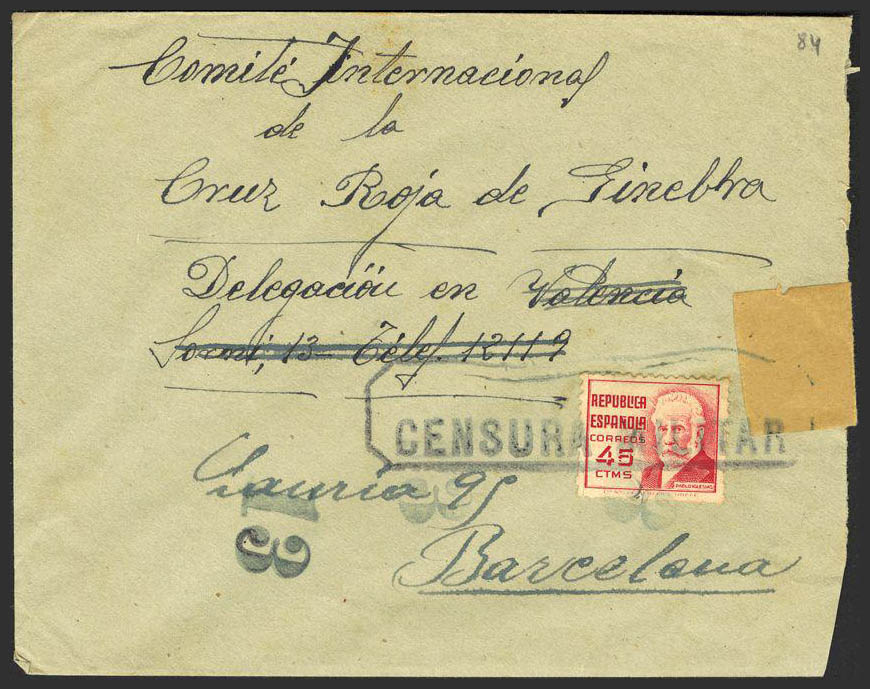 84
Comité Internacional
de la
Cruz Roja de Ginebra
Delegación en Valencia
Sorní, 13 - Teléf. 12119
REPUBLICA
ESPAÑOLA
CORREOS
45
CTMS
PABLO IGLESIAS
CENSURA MILITAR
Lauria 95
13
Barcelona